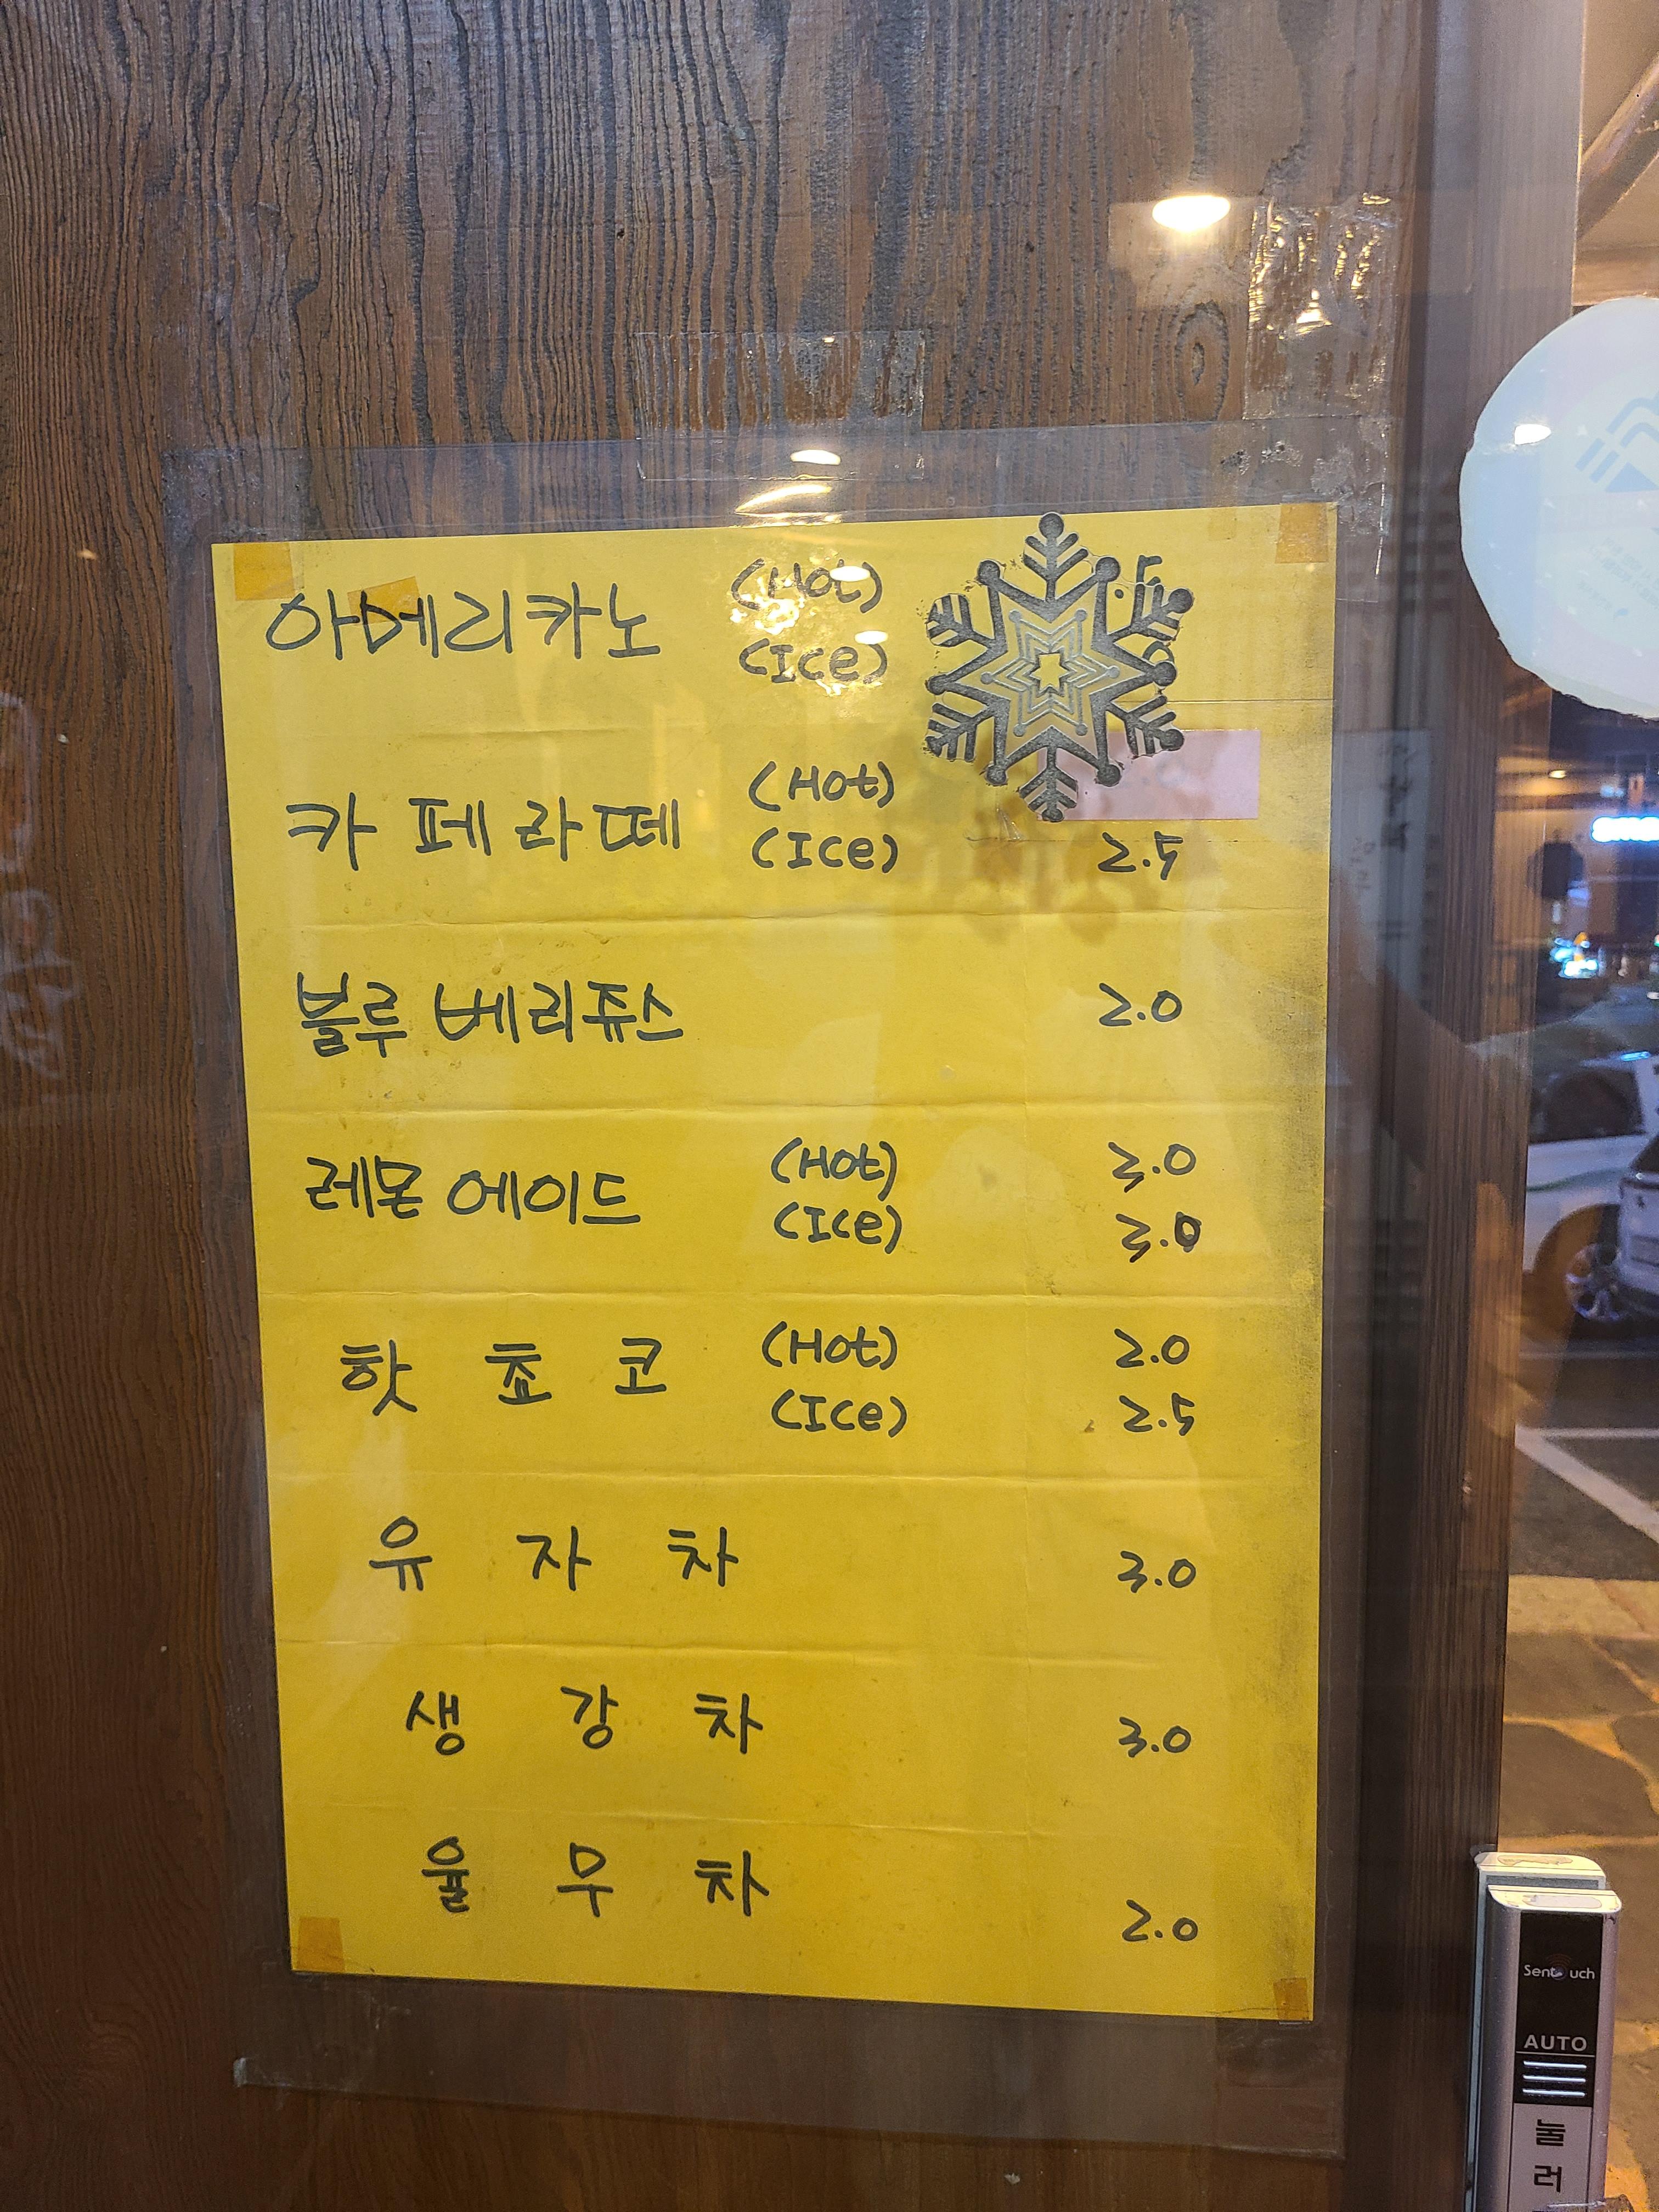 아메리카노 (Hot)
(Ice)
카페라떼 (Hot)
(Ice) 2.5
블루베리쥬스 2.0
레몬에이드 (Hot) 3.0
(Ice) 3.0
핫쵸코 (Hot) 2.0
(Ice) 2.5
유자차 3.0
생강차 3.0
율무차 2.0
Sentouch
AUTO
눌
러